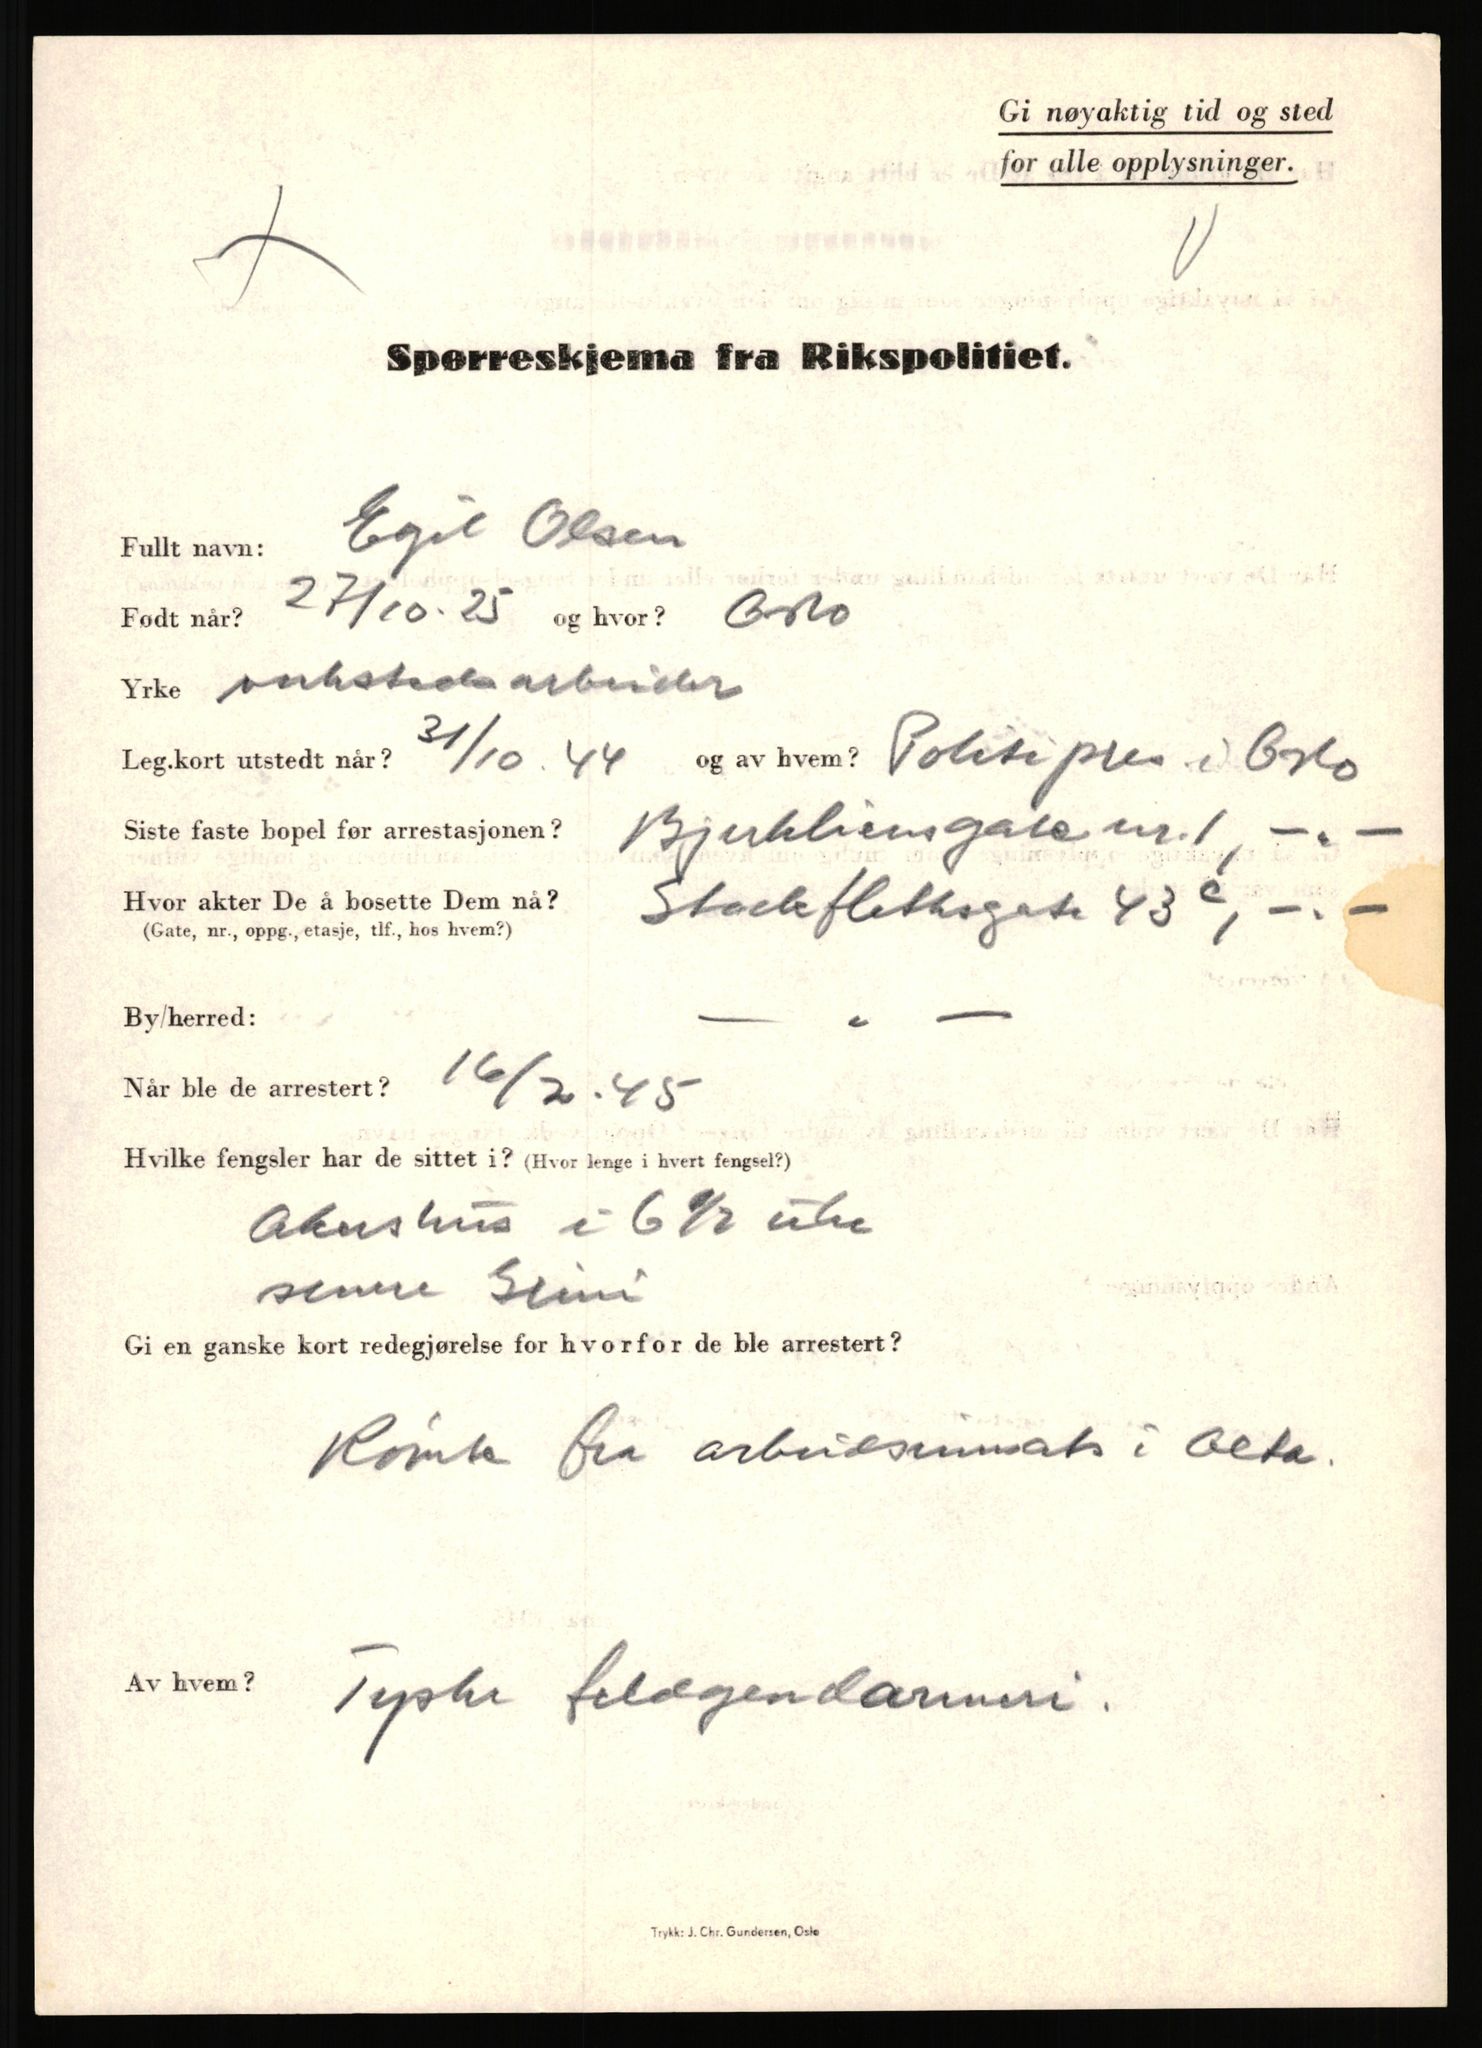 Gi nøyaktig tid og sted
for alle opplysninger.
Spørreskjema fra Rikspolitiet.
Fullt navn: Egil Olsen
Født når? 27/10.25 og hvor? Oslo
Yrke verkstedsarbeider
Leg.kort utstedt når? 31/10.44 og av hvem? Politipres i Oslo
Siste faste bopel før arrestasjonen? Bjerkliensgate nr. 1, —„—
Hvor akter De å bosette Dem nå? Stockflethsgate 43 c, —„—
(Gate, nr., oppg., etasje, tlf., hos hvem?)
By/herred: —„—
Når ble de arrestert? 16/2.45
Hvilke fengsler har de sittet i? (Hvor lenge i hvert fengsel?)
Akershus i 6 1/2 uke
senere Grini
Gi en ganske kort redegjørelse for hvorfor de ble arrestert?
Rømte fra arbeidsinnsats i Alta.
Av hvem? Tyske feldgendarmeri.
Trykk: J. Chr. Gundersen, Oslo